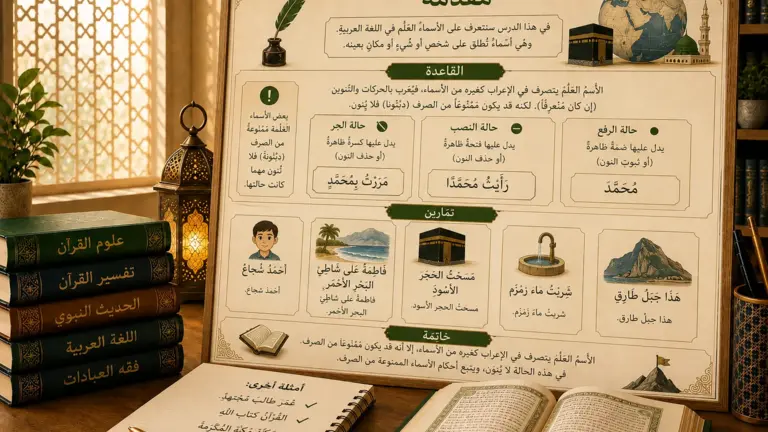 مقدمة
في هذا الدرس سنتعرف على الأسماءُ العَلُم في اللغة العربيةِ.
وهي أسْماءُ تُطلق على شخصٍ أو شُيءٍ أو مكانٍ بعينه.
القاعدة
الأسمُ العَلُمُ يتصرف في الإعراب كغيره من الأسماء، فيُعْربُ بالحركات والتنوين
(إن كان مُنْعرِقاً). لكنه قد يكون مَمْنُوعاً من الصرف (دبْتُونا) فلا يُنون.
حالة الرفع
يدل عليها ضمَةُ ظاهرةُ
(أو ثبوتِ النون)
مُحَمَّدَ
حالة النصب
يدل عليها فتحةُ ظاهرةُ
(أو حذف النون)
رَأَيْتُ مُحَمَّدًا
حالة الجر
يدل عليها كسرةُ ظاهرةُ
(أو حذف النون)
مَرَرْتُ بِمُحَمَّدٍ
بعض الأسماء
العَلَمة مَمْنُوعةُ
من الصرف
(دبْتُونة) فلا
تُنون مهما
كانت حالتها.
تمَارين
هَذَا جَبَلُ طَارِقِ
هذا جبلُ طارق.
شَرِبْتُ مَاءَ زَمْزَم
شربتُ ماءَ زمْزَم.
مَسَحْتُ الحَجَر
الأسْودَ
مسحتُ الحجر الأسود.
فَاطِمَةُ عَلى شَاطِئِ
البَحْرِ الأحْمَرِ.
فاطمةُ على شاطئ
البحر الأحمر.
أحْمَدُ شُجاعُ
أحمدُ شجاع.
خَاتِمَة
الأسْمُ العَلَمُ يتصرف في الإعراب كغيره من الأسماء، إلا أنه قد يكون مَمْنُوعًا من الصرف.
في هذه الحالة لا يُنوَن، ويتبع أحكام الأسماء الممنوعة من الصرف.
علوم القرآن
تفسير القرآن
الحديث النبوي
اللغة العربية
فقه العبادات
أمثلة أخرى:
عُمَرَ طالبُ مُجتهدُ.
القُرْآنُ كتاب اللهِ
مَكَةُ المُكَرَمةُ